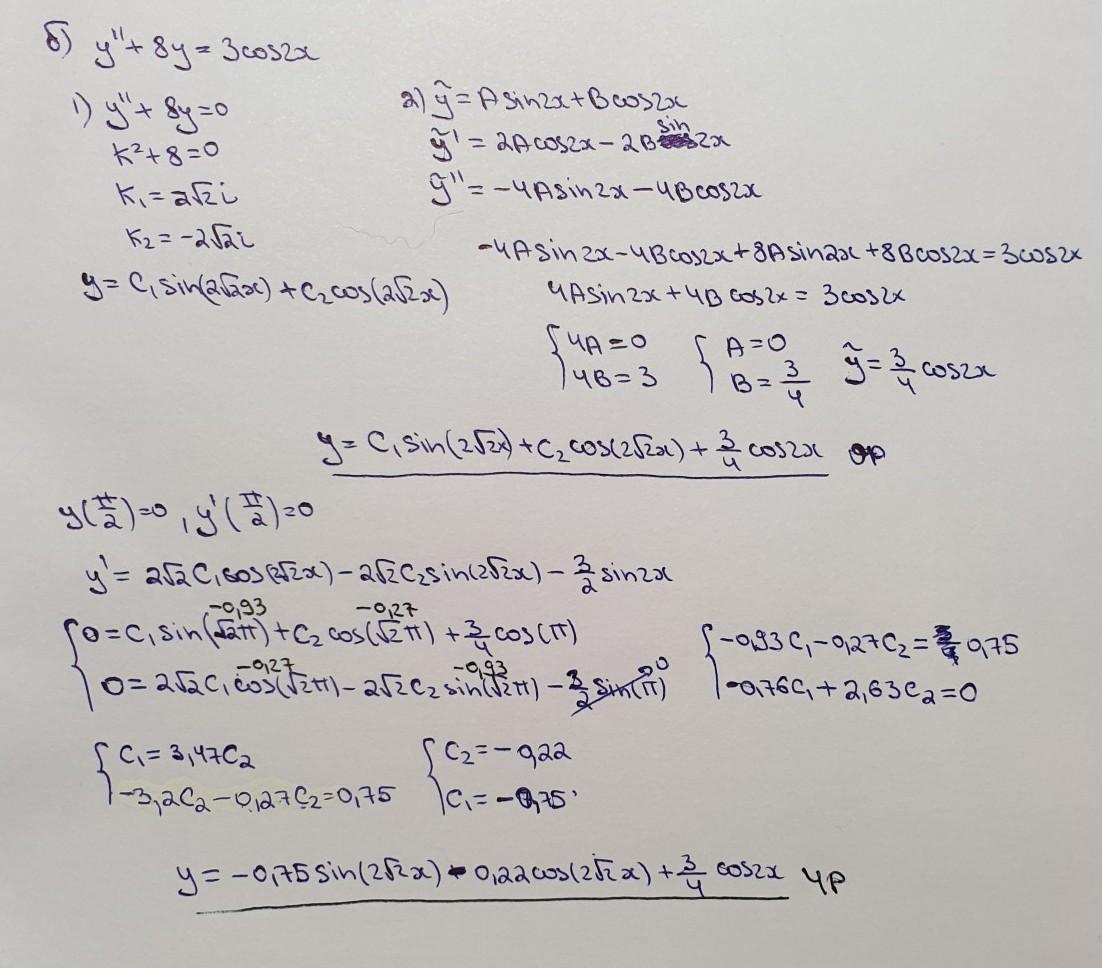 б) y''+ 8y = 3cos2x
1) y''+ 8y=0
K²+8=0
K₁=2√2i
K₂ = -2√2i
y= C₁sin(2√2x) +C₂cos(2√2x)
2) ỹ=Asin2x+Bcos2x
ỹ' = 2Acos2x - 2Bsin2x
ỹ'' = -4Asin2x-4Bcos2x
-4Asin2x-4Bcos2x+8Asin2x+8Bcos2x=3cos2x
4Asin2x+4Bcos2x = 3cos2x
{4A=0 {A=0 ỹ=3/4 cos2x
4B=3 B=3/4
y= C₁sin(2√2x)+C₂cos(2√2x)+3/4 cos2x ОР
y(π/2)=0, y'(π/2)=0
y' = 2√2C₁cos(2√2x)-2√2C₂sin(2√2x)-3/2 sin2x
-0,93 -0,27
{0=C₁sin(√2π)+C₂cos(√2π)+3/4 cos(π)
-0,27 -0,93 0
0=2√2C₁cos(√2π)-2√2C₂sin(√2π)-3/2 sin(π)
{-0,93C₁-0,27C₂=0,75
-0,76C₁+2,63C₂=0
{C₁=3,47C₂ {C₂=-0,22
-3,2C₂-0,27C₂=0,75 C₁=-0,75
y = -0,75sin(2√2x) - 0,22cos(2√2x)+3/4 cos2x ЧР